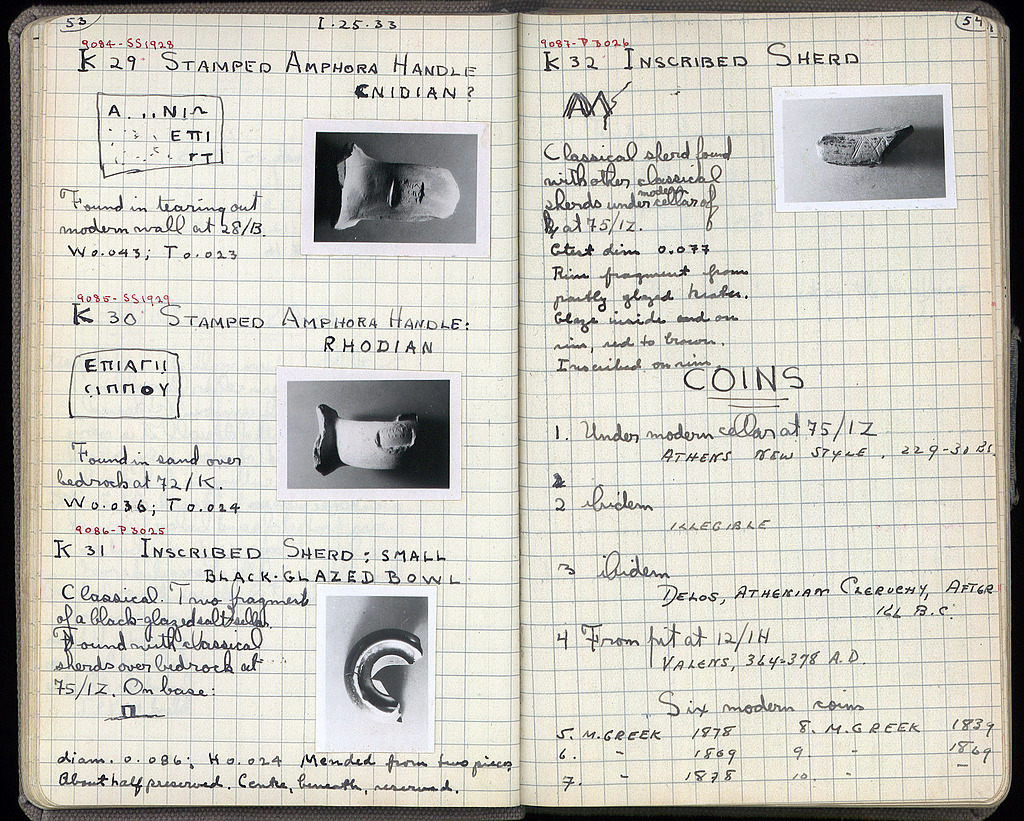 53
I.25.33
9084-SS1928
K 29 STAMPED AMPHORA HANDLE
CNIDIAN?
Α . . . ΝΙ
ΕΠΙ
Found in tearing out
modern wall at 28/B.
W 0.043; T 0.023
9085-SS1929
K 30 STAMPED AMPHORA HANDLE:
RHODIAN
ΕΠΙΑΓΗ
ΣΙΠΠΟΥ
Found in sand over
bedrock at 72/K.
W 0.036; T 0.024
9086-P3025
K 31 INSCRIBED SHERD: SMALL
BLACK-GLAZED BOWL
Classical. Two fragments
of a black-glazed salt cellar.
Found with classical
sherds over bedrock at
75/IZ. On base:
diam. 0.086; H 0.024 Mended from two pieces
About half preserved. Centre, beneath, reserved.
54
9087-P3026
K 32 INSCRIBED SHERD
Classical sherd found
with other classical
sherds under modern cellar of
at 75/IZ.
Gtest dim 0.077
Rim fragment from
partly glazed krater.
Glaze inside and on
rim, red to brown.
Inscribed on rim
COINS
1. Under modern cellar at 75/IZ
ATHENS NEW STYLE. 229-30 BC.
2 ibidem
ILLEGIBLE
3 ibidem
DELOS, ATHENIAN CLERUCHY, AFTER
166 B.C.
4 From pit at 12/IH
VALENS, 364-378 A.D.
Six modern coins
5. M. GREEK 1878 8. M. GREEK 1839
6. - 1869 9. - 1869
7. - 1878 10. - -